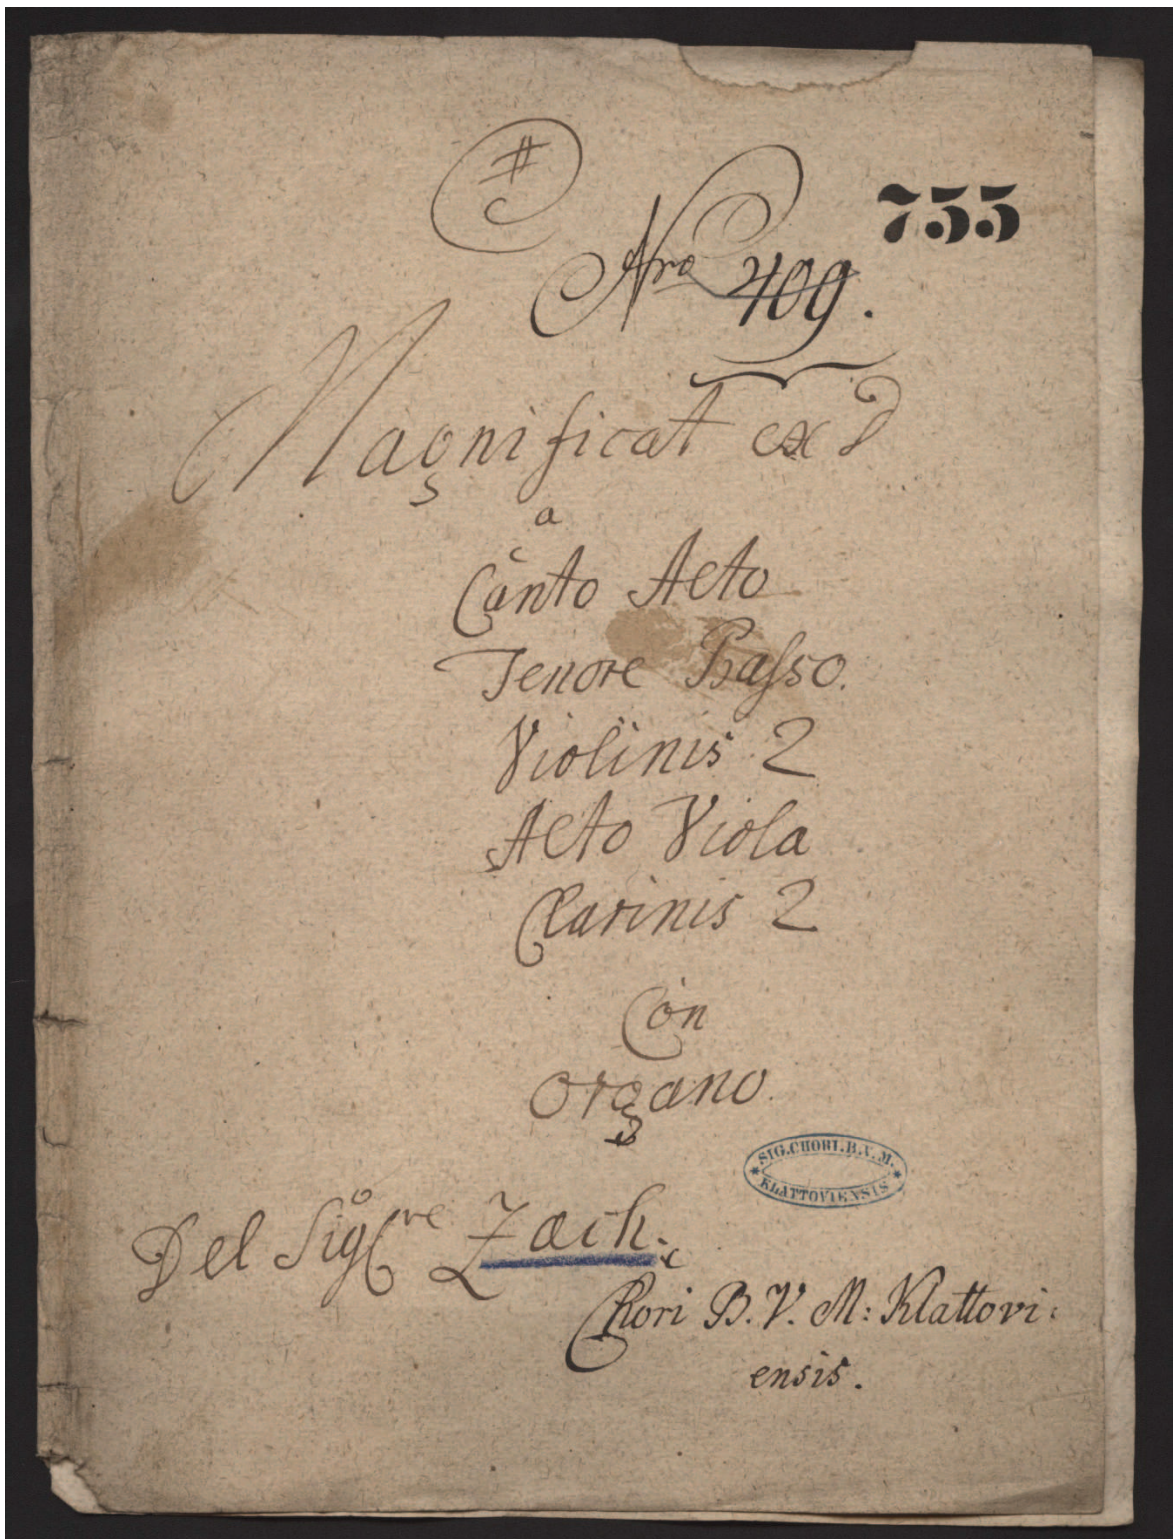 #
755
Nro 409.
Magnificat ex D
a
Canto Alto
Tenore Basso.
Violinis 2
Alto Viola
Clarinis 2
Con
Organo.
SIG.CHORI.B.V.M.
KLATTOVIENSIS
Del Sigre Zach.
Chori B. V. M: Klattovi:
ensis.